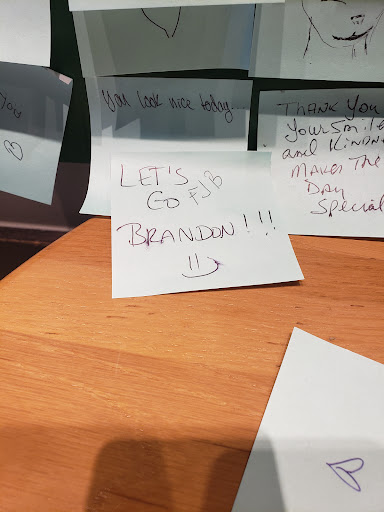 you
You look nice today.
THANK YOU
YOUR SMILE
and KINDN
MAKES THE
DAY
SPECIAL
LET'S
GO FJB
BRANDON!!!